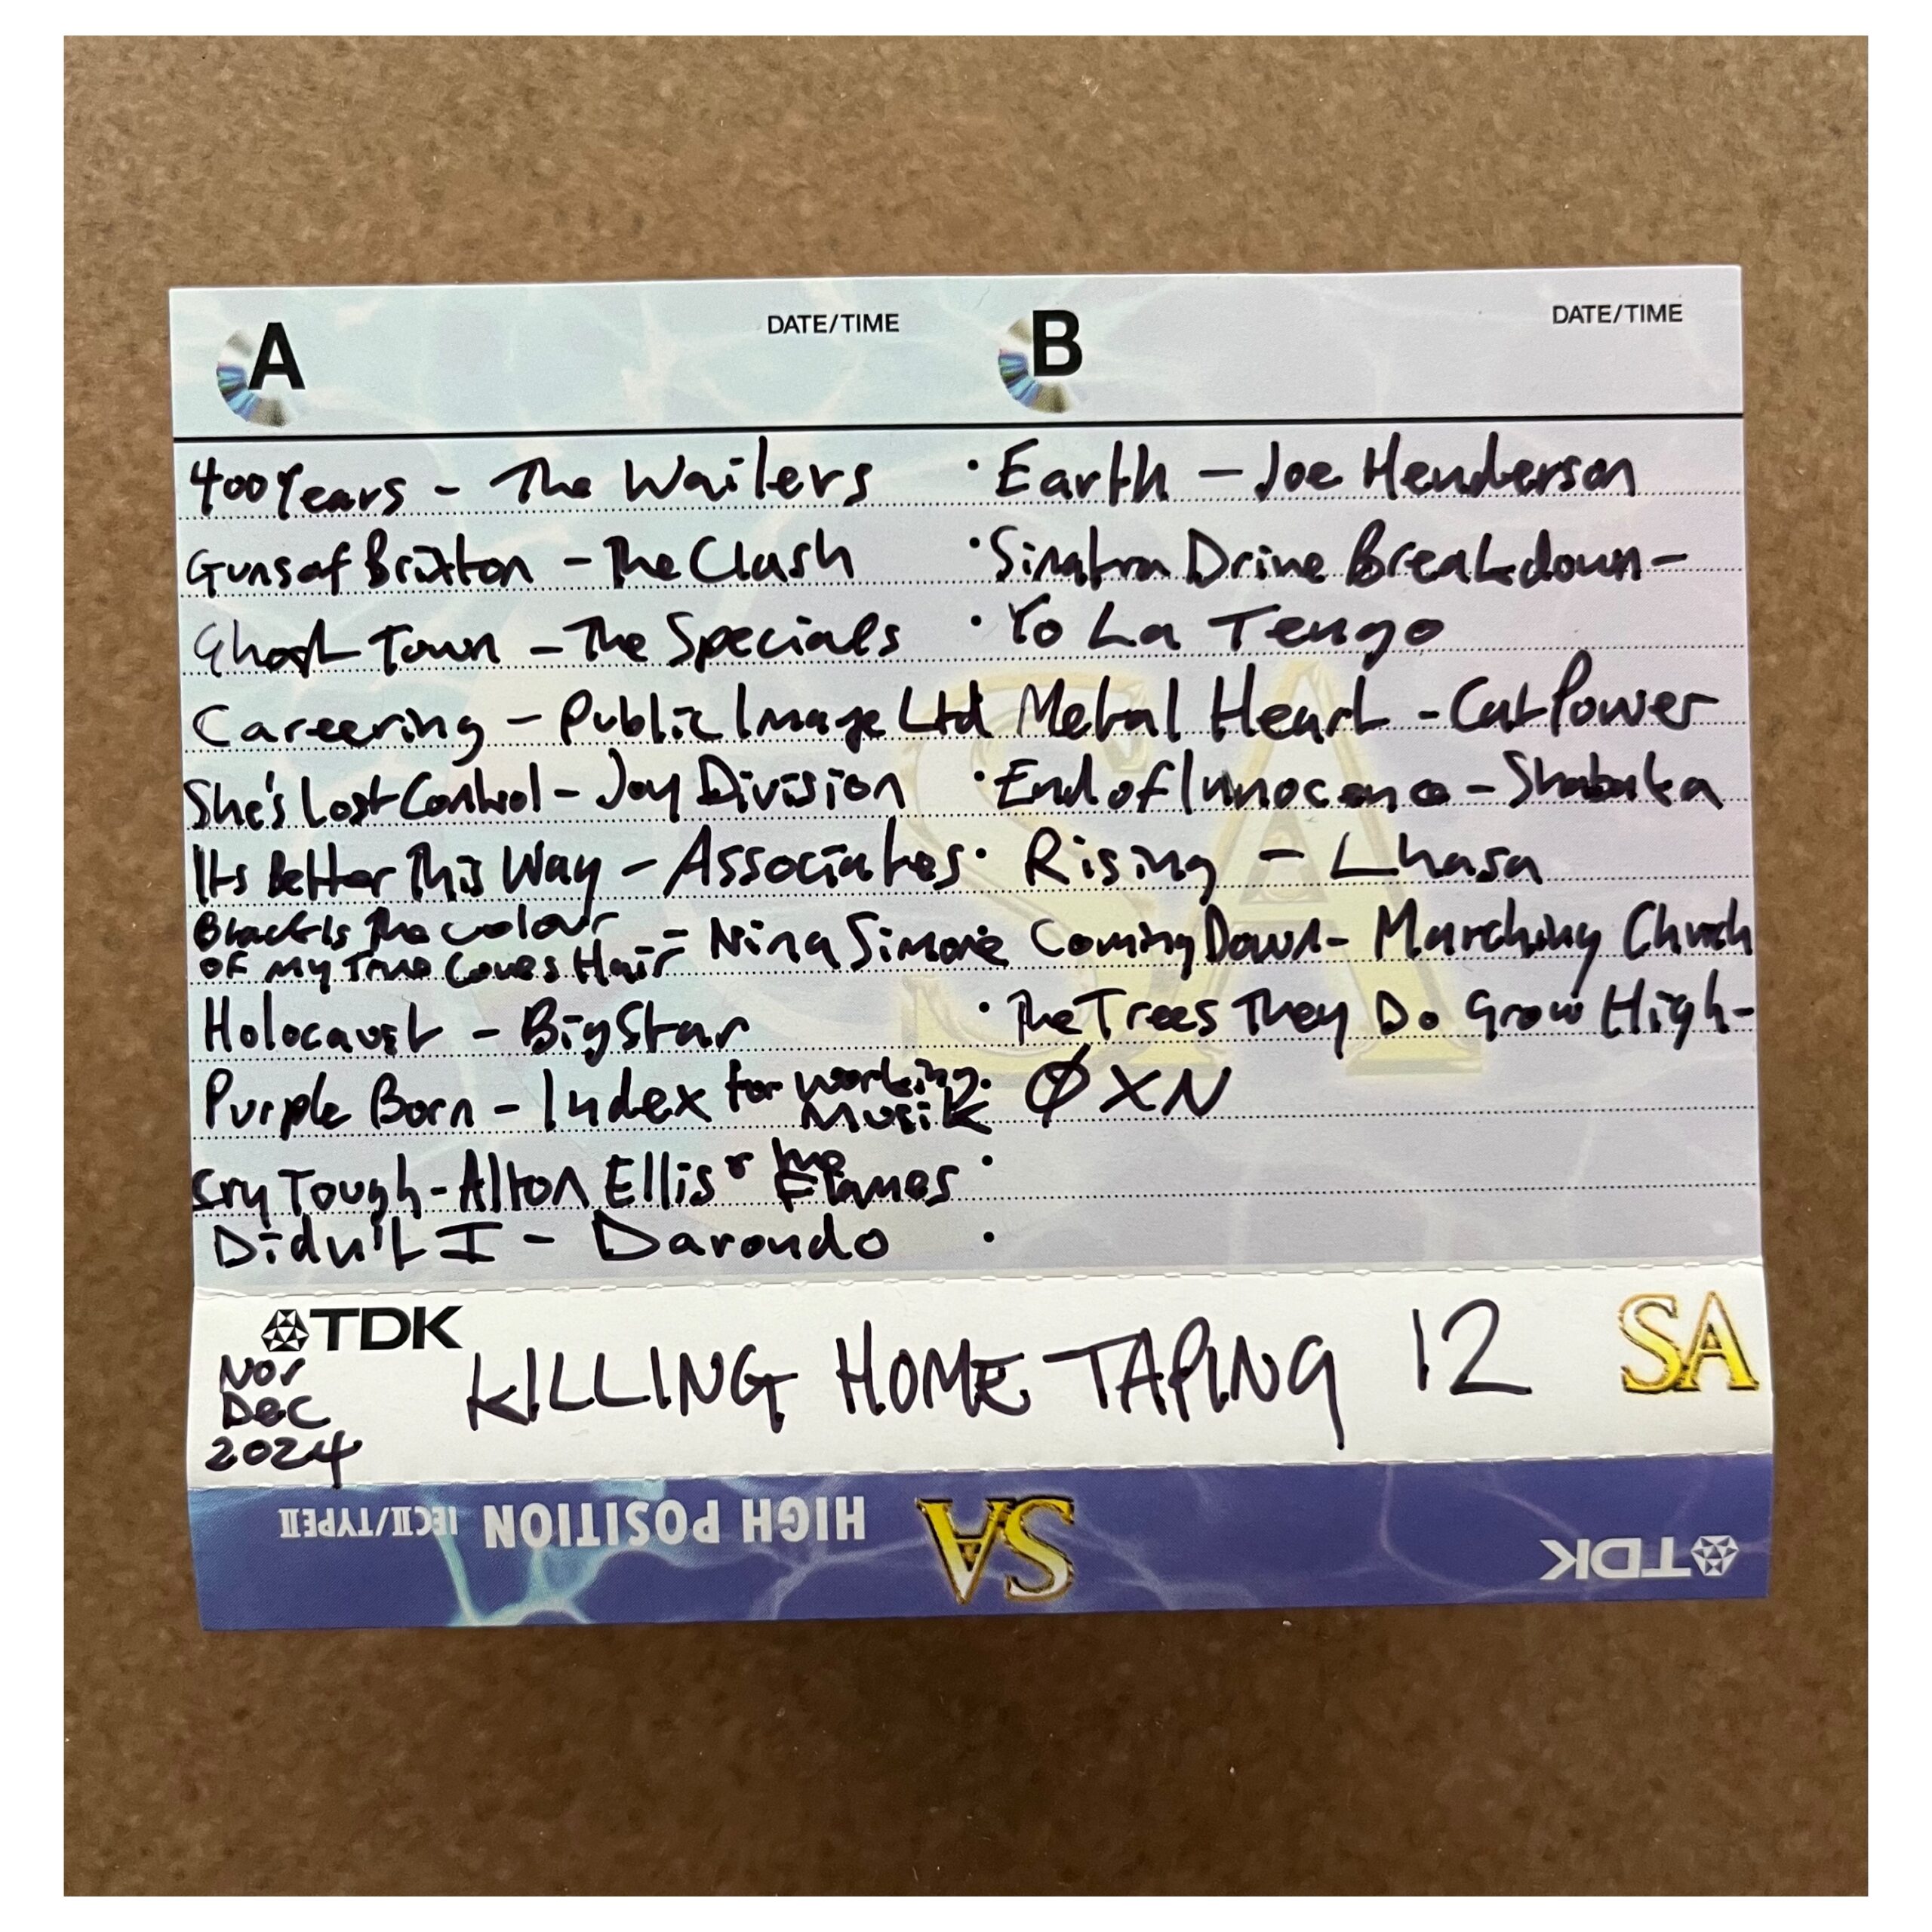 A DATE/TIME
400 Years - The Wailers
Guns of Brixton - The Clash
Ghost Town - The Specials
Careering - Public Image Ltd
She's Lost Control - Joy Division
Its Better This Way - Associates
Black Is The Colour
Of My True Loves Hair - Nina Simone
Holocaust - Big Star
Purple Born - Index for working
Musik
Cry Tough - Alton Ellis & the
Flames
Didn't I - Darondo
B DATE/TIME
· Earth - Joe Henderson
· Sinatra Drive Breakdown -
· Yo La Tengo
Metal Heart - Cat Power
· End of Innocence - Shabaka
· Rising - Lhasa
Coming Down - Marching Church
· The Trees They Do Grow High -
· ØXN
TDK
Nov
Dec
2024
KILLING HOME TAPING 12
SA
HIGH POSITION IECII/TYPEII
SA
TDK